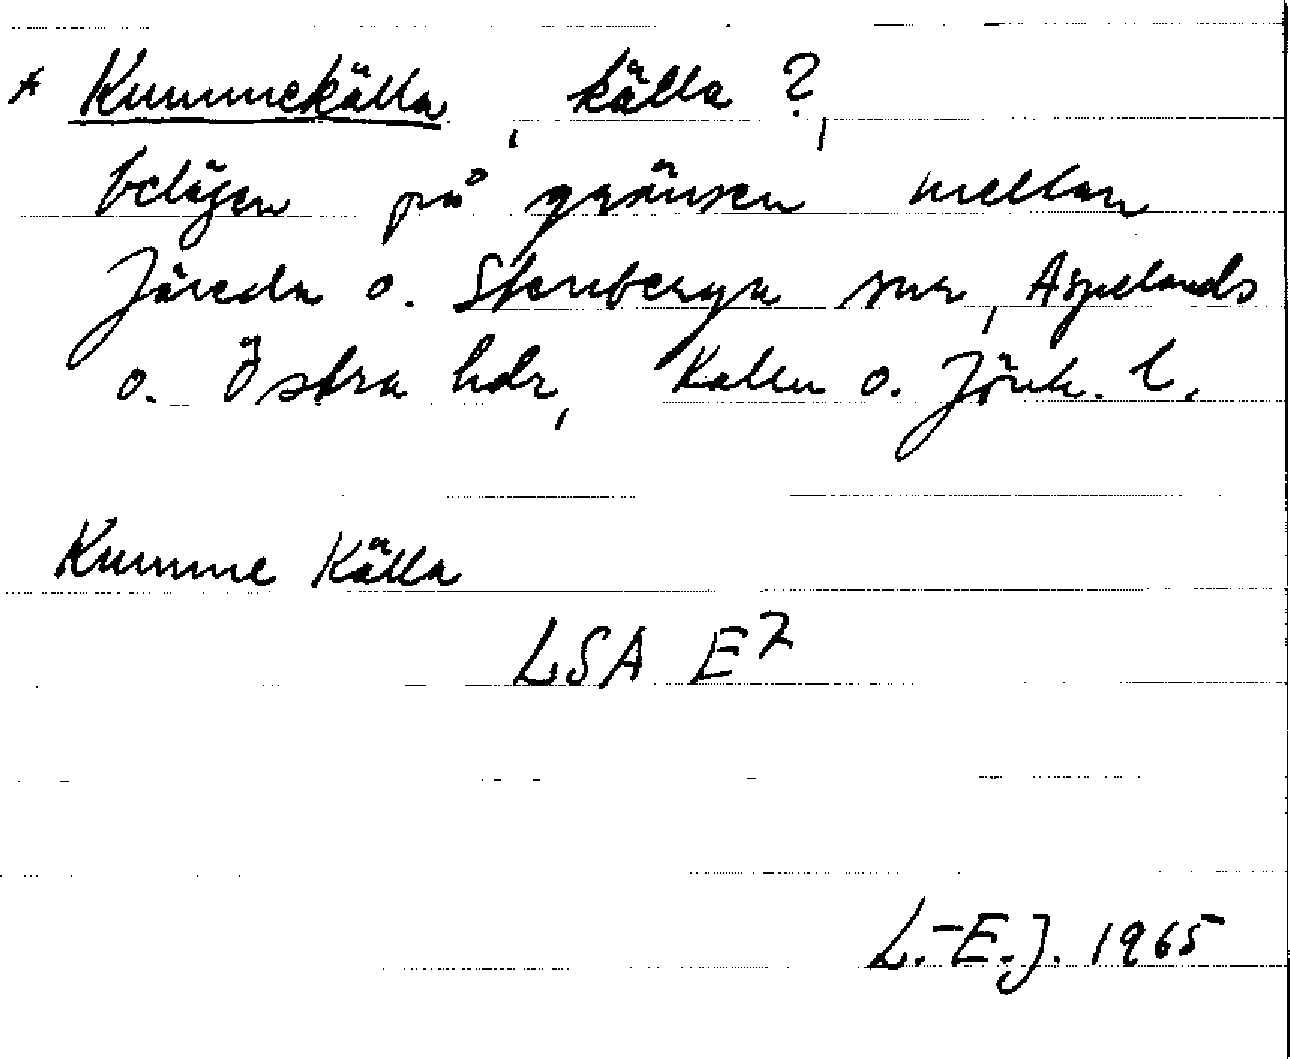 * Kummekälla, källa?,
belägen på gränsen mellan
Järeda o. Stenberga snr, Aspelands
o. Östra hdr, Kalm o. Jönk. l.
Kumme Källa
LSA E7
L.-E.J. 1965